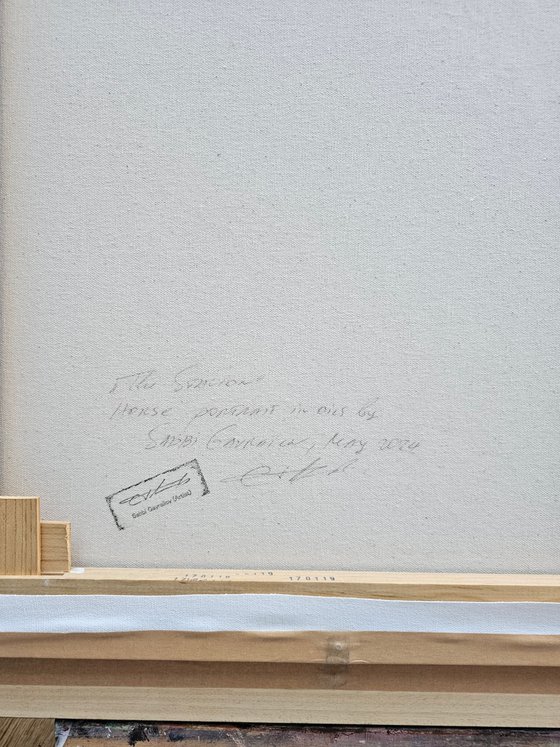 "The Stallion"
Horse portrait in oils by
Sabbi Gavrailov, May 2024
Sabbi Gavrailov (Artist)
170119 170119